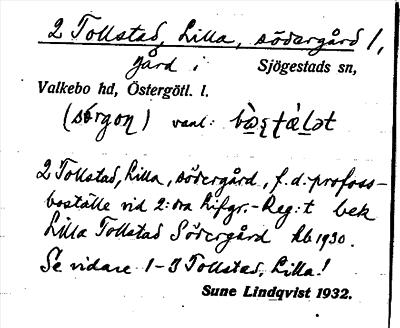 2 Tollstad, Lilla, södergård /,
gård i Sjögestads sn,
Valkebo hd, Östergötl. l.
(sö́rgoṇ) vanl:
2 Tollstad, Lilla, södergård, f.d. profoss-
boställe vid 2:dra Lifgr.-Reg:t bek
Lilla Tollstad Södergård Kb 1930.
Se vidare 1-3 Tollstad, Lilla!
Sune Lindqvist 1932.